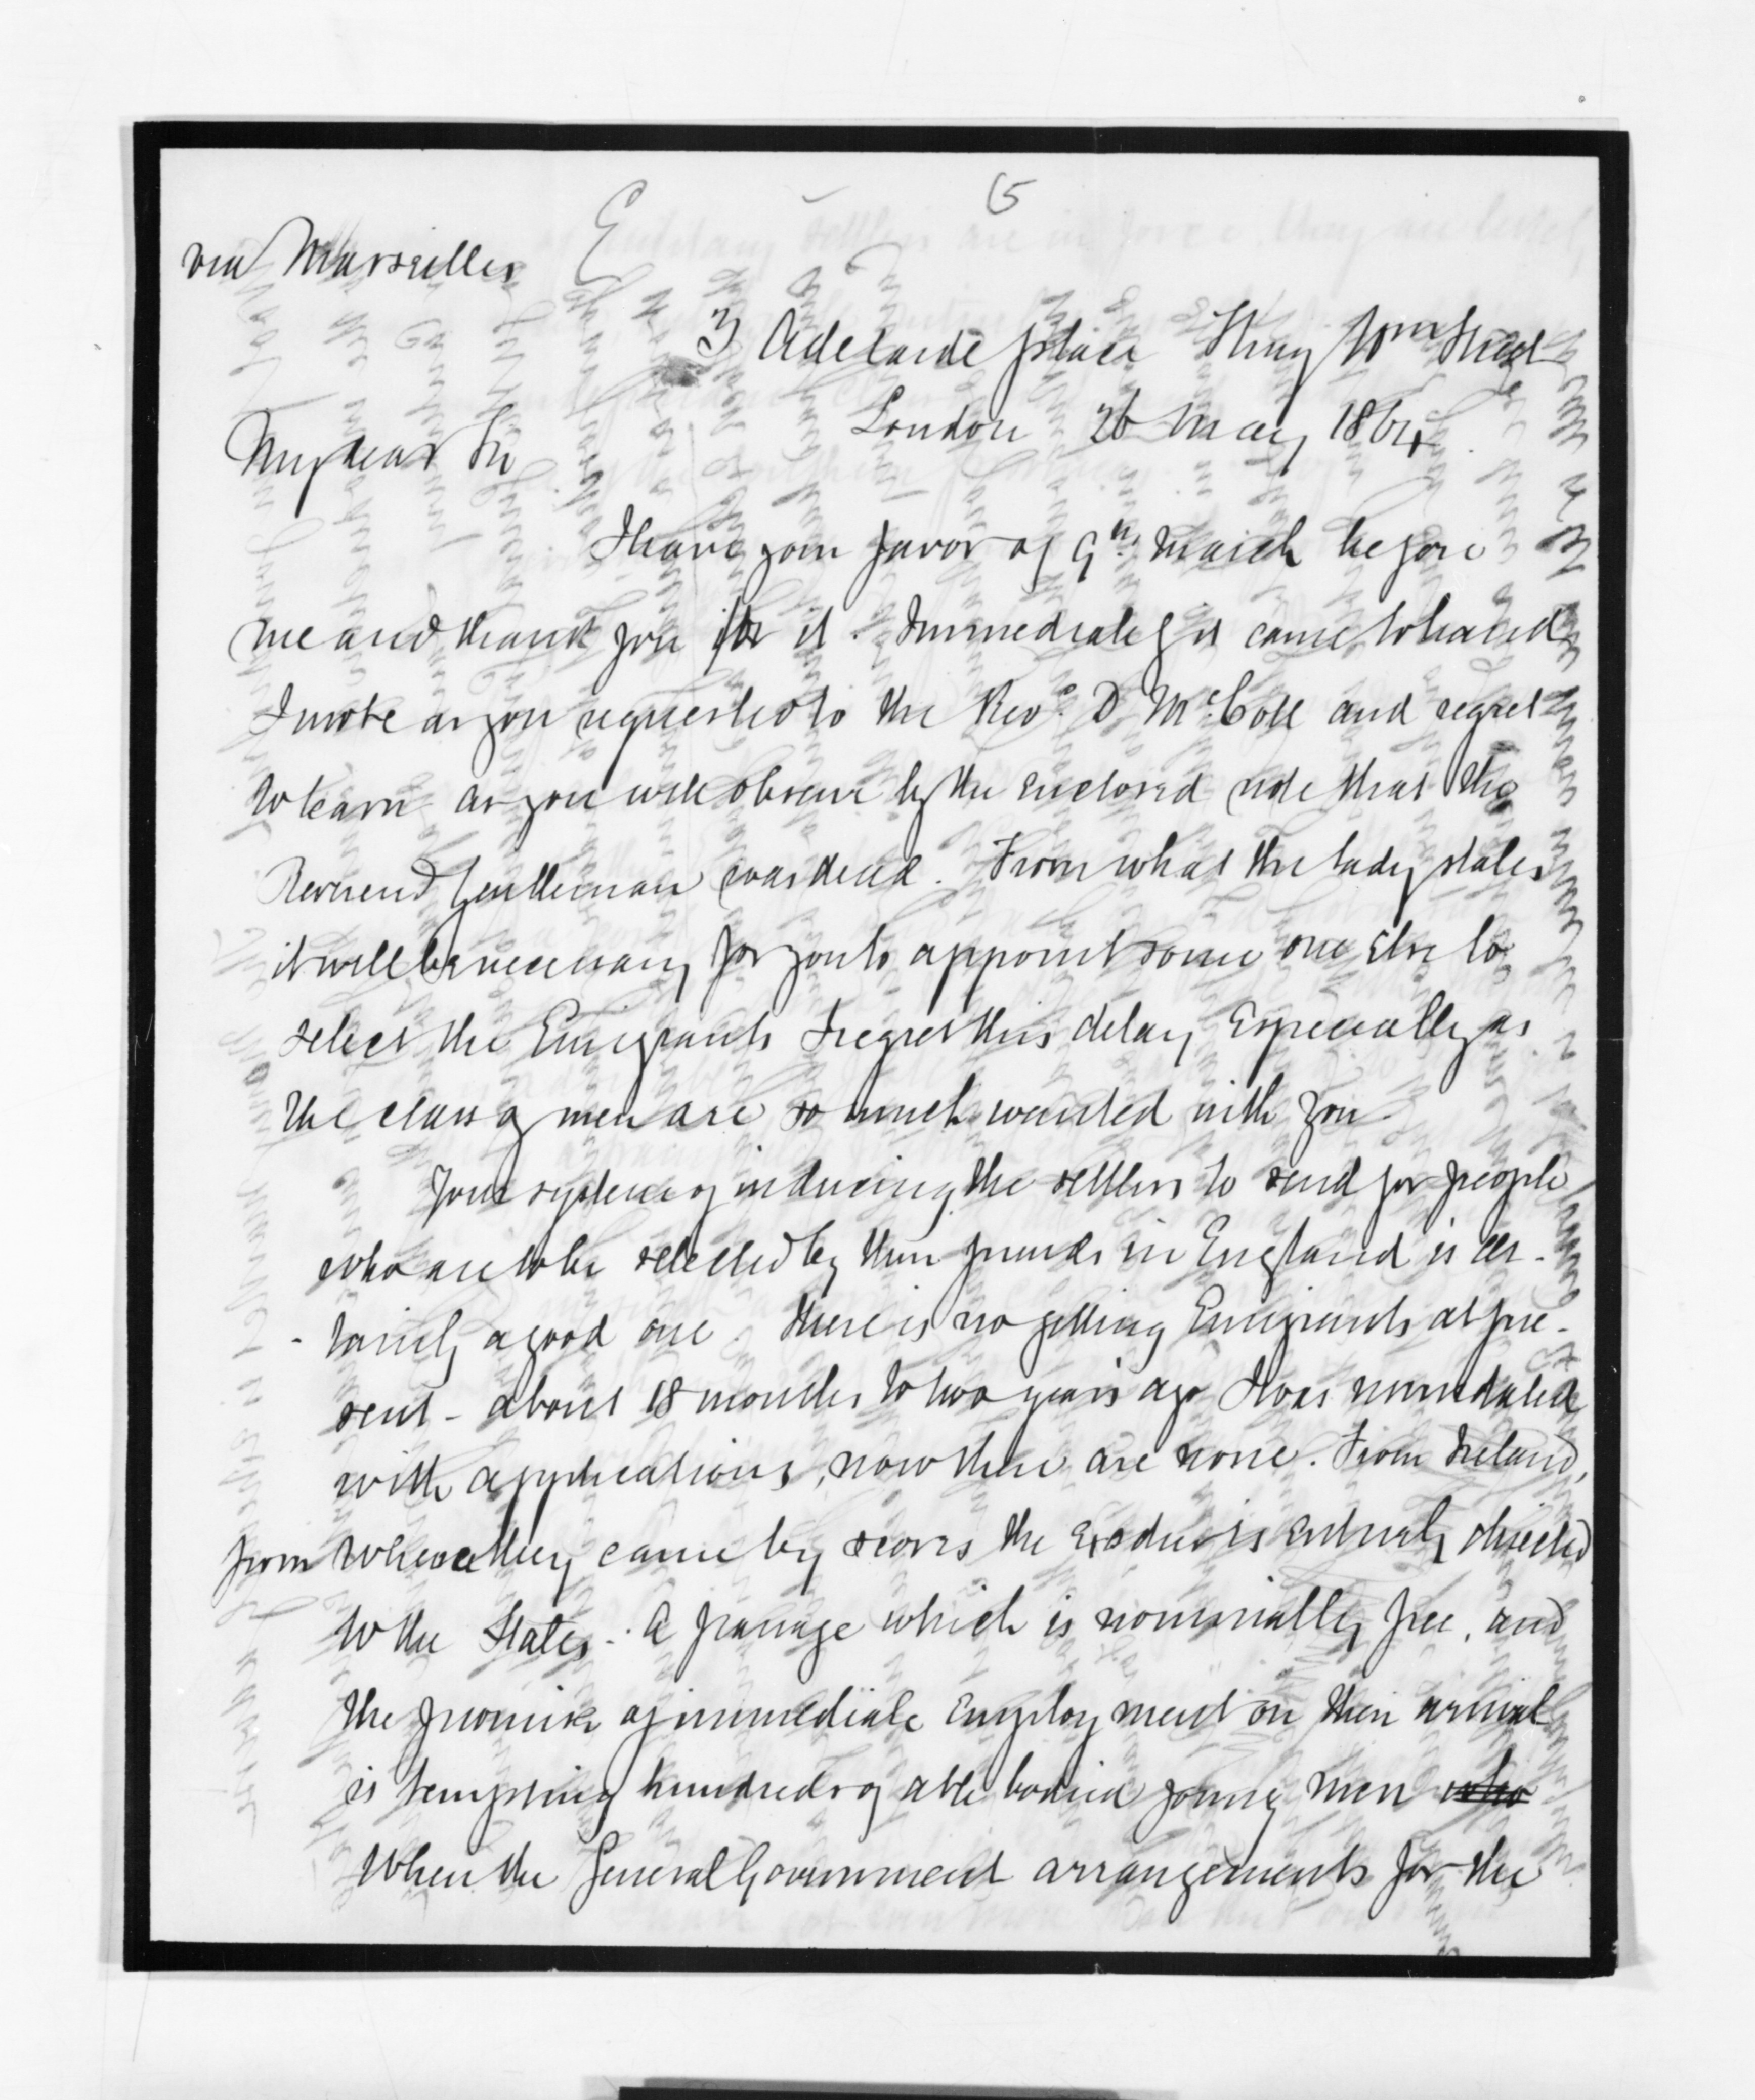 E
15
via Marseilles
3 Adelaide place King Wm Street
London 26 May 1864
My dear Sir
I have your favor of 9th March before
me and thank you for it. Immediately it came to hand
I wrote as you requested to the Revd. D McColl and regret
to learn as you will observe by the enclosed note that the
Reverend Gentleman was dead. From what the lady states
it will be necessary for you to appoint some one else to
select the Emigrants I regret this delay Especially as
the class of men are so much wanted with you
Your system of inducing the settlers to send for people
who are to be selected by their friends in England is cer-
-tainly a good one. There is no getting Emigrants at pre-
sent - about 18 months to two years ago I was inundated
with applications, now there are none. From Ireland,
from whence they came by scores the Exodus is entirely directed
to the States. A passage which is nominally free, and
the promise of immediate Employment on their arrival
is tempting hundreds of able bodied young men who
When the General Government arrangements for the